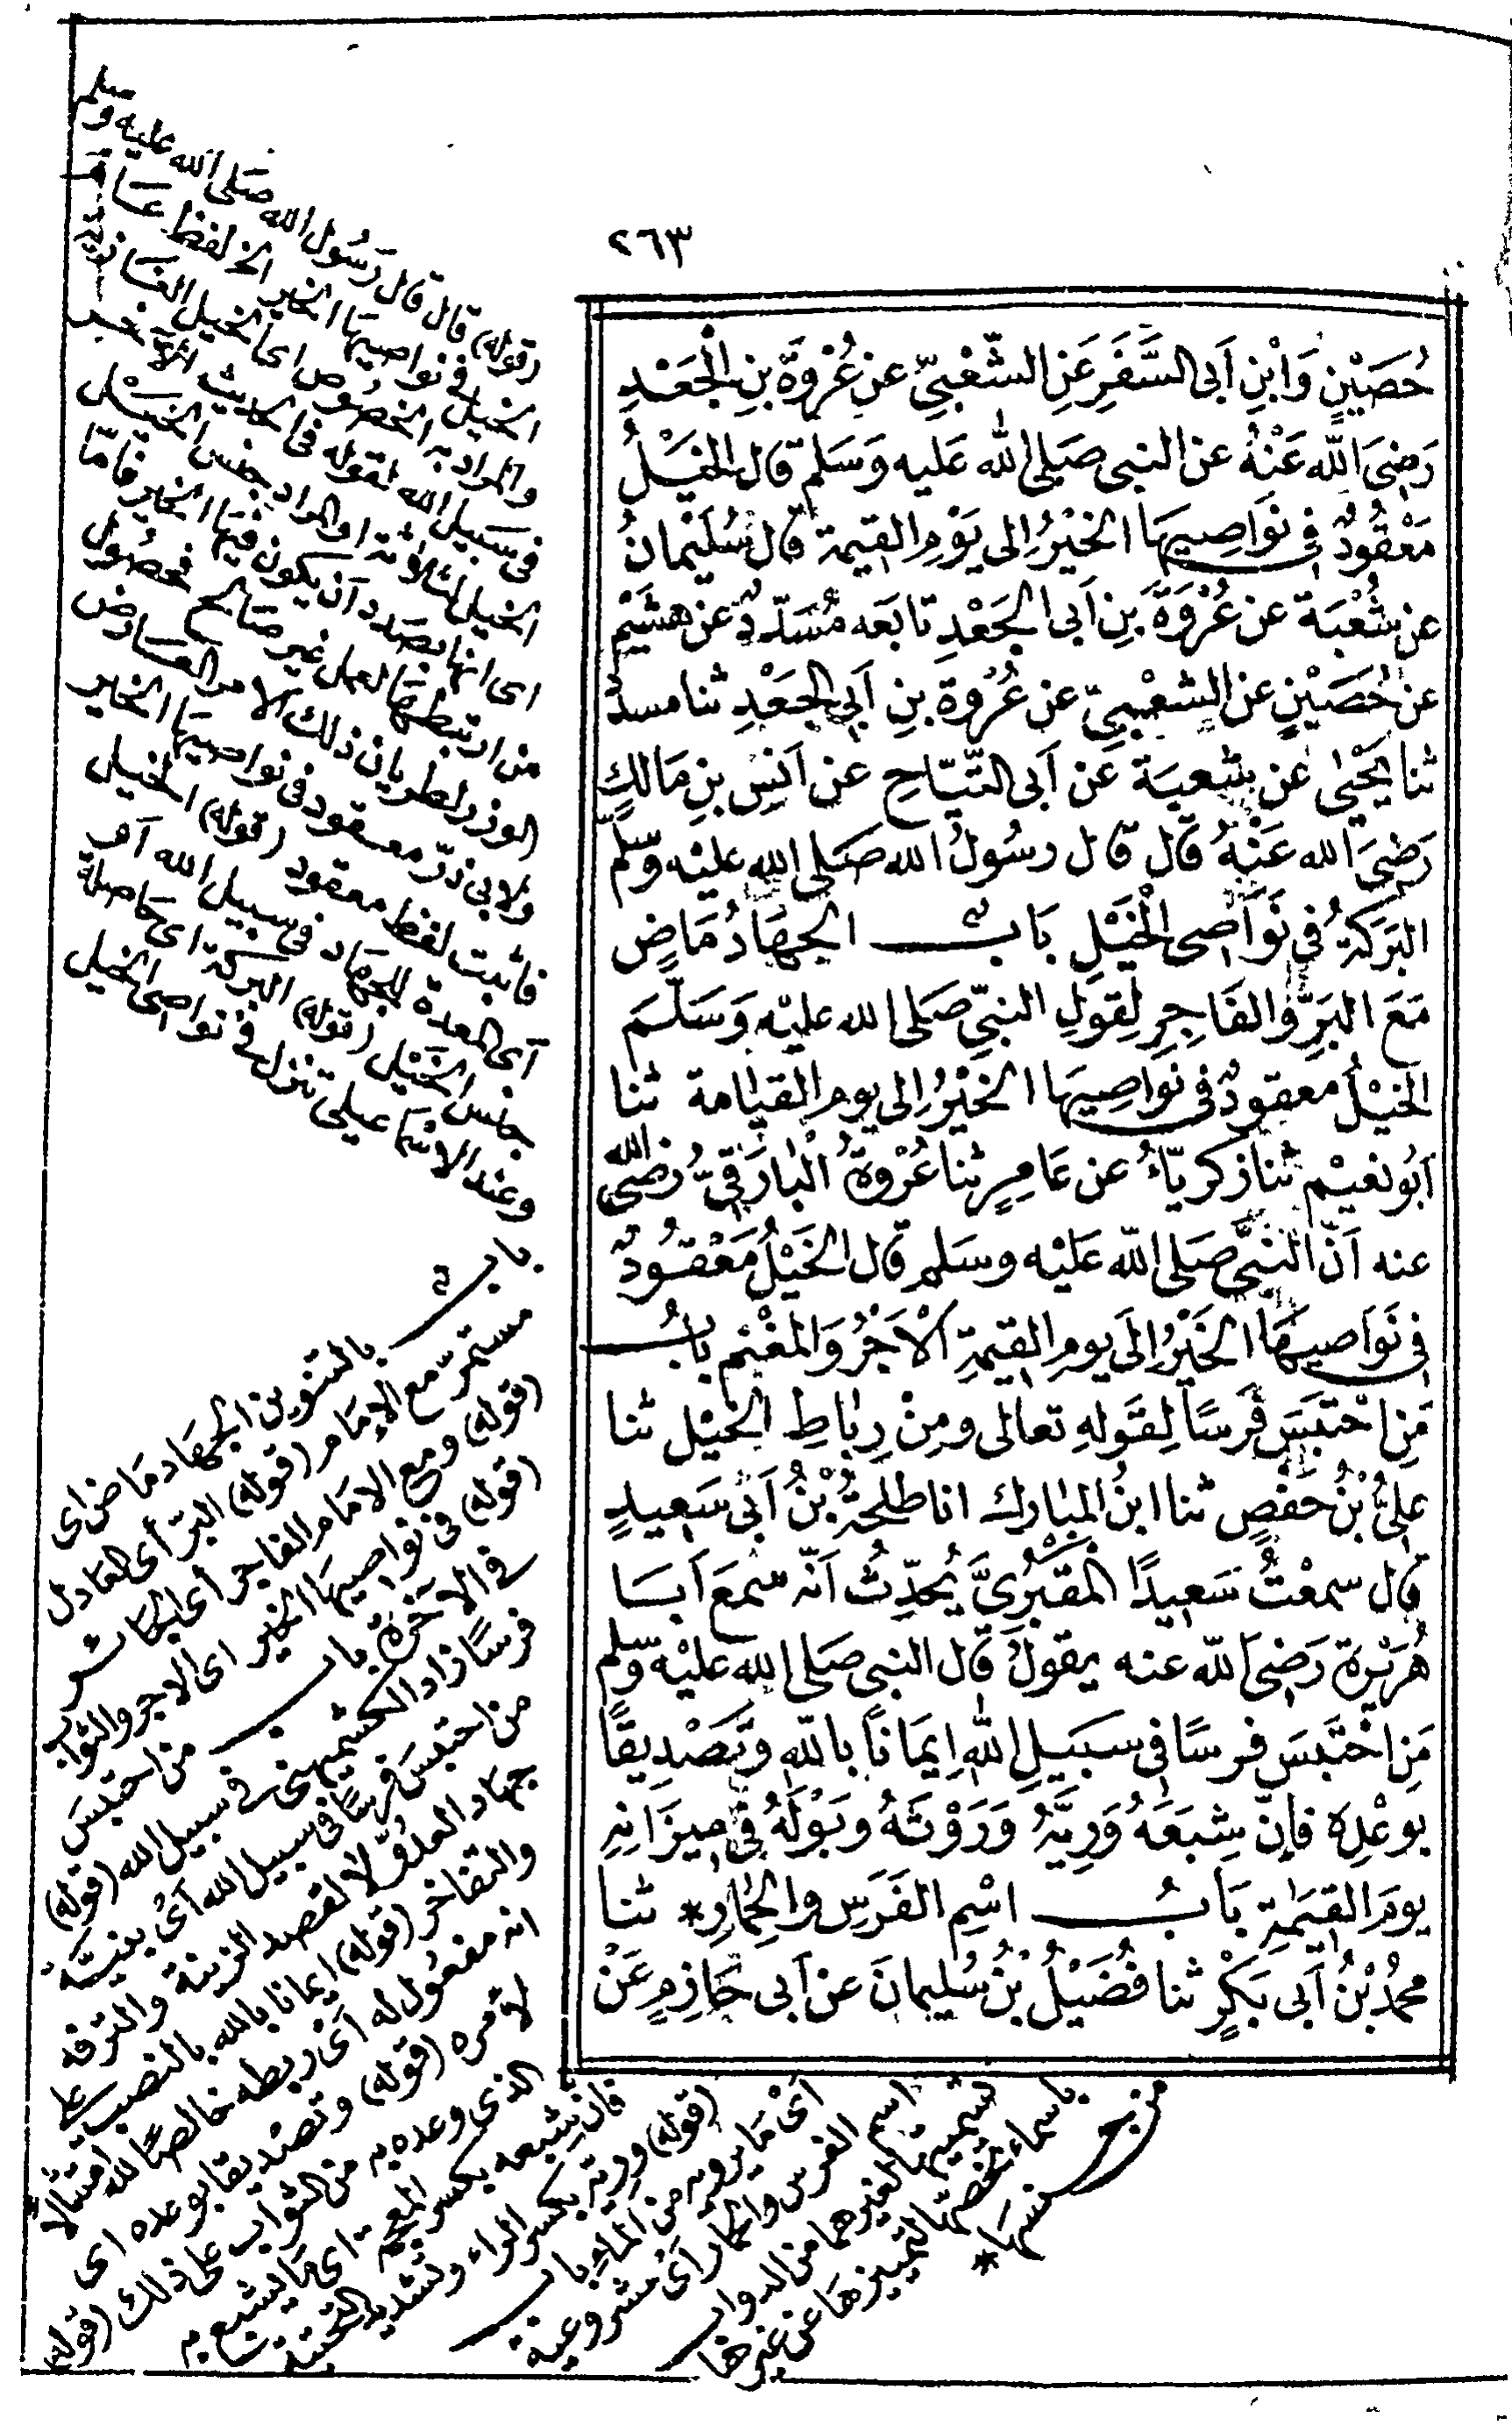 ٢٦٣
حُصَيْنٍ وَابْنِ اَبى السَّفَرِ عَنِ الشَّعْبِىِّ عن عُرْوَةَ بنِ الْجَعْدِ
رَضِىَ اللّٰه عَنْهُ عن النبى صَلى اللّٰه عَليه وَسَلم قال الخَيْلُ
مَعْقُودٌ فى نَوَاصِيهَا الخَيْرُ اِلى يَوْمِ القيمة قال سُلَيْمانُ
عن شُعْبَة عن عُرْوَةَ بنِ اَبى الجَعْدِ تابَعَه مُسَدّدٌ عن هشَيْمٍ
عن حُصَيْنٍ عن الشعْبىّ عن عُرْوَة بنِ اَبى الجَعْدِ ثنا مسددٌ
ثنا يَحْيٰى عن شعبَة عَن اَبى التَّيّاحِ عن اَنسِ بنِ مَالكٍ
رَضِىَ الله عَنْهُ قال قال رسُولُ الله صَلى الله عليْه وسّلم
البَرَكَةُ فى نَوَاصِى الْخَيْلِ بَابٌ الجهَادُ مَاضٍ
مَعَ البَرِّ وَالفَاجِرِ لِقَولِ النبىّ صَلى الله عليْه وَسَلَّمَ
الخَيْلُ معقودٌ فى نوَاصِيهَا الخيْرُ اِلى يوم القيامة ثنا
اَبُو نعَيْم ثنا زكريّاءُ عن عَامِرٍ ثنا عُرْوَةُ الْبارقِىُّ رَضىَ الله
عنه اَنّ النَّبىَّ صَلى اللّٰه عَليْه وسَلم قال الخَيْلُ مَعْقُودٌ
فى نَوَاصيهَا الخَيْرُ اِلَى يومِ القِيمَةِ اَلْاَجْرُ وَالمَغْنَم بابُ
مَنِ احْتَبَسَ فَرَسًا لِقَولهِ تعالى ومِنْ رِباطِ الخَيْل ثنا
عَلِىُّ بْنُ حَفْصٍ ثنا ابنُ المبارك انا طلحَةُ بْنُ اَبى سَعِيدٍ
قال سمعْتُ سَعِيدًا المَقْبُرِىَّ يُحَدِّثُ اَنّه سَمعَ اَبَا
هُرَيْرَة رَضىَ اللّٰه عنه يقولُ قال النبى صَلى الله عليْه وسّلم
مَنِ احْتَبَسَ فرسًا فى سَبيلِ اللّٰهِ اِيمَانًا باللّٰه وتَصْدِيقًا
بوعْدِه فاِنّ شِبَعَهُ وَرِيَّهُ وَرَوْثَهُ وبَوْلَهُ فى مِيزَانِهِ
يومَ القِيمَةِ بَابُ اسْمِ الفَرَسِ والحِمَارِ * ثنا
محمدُ بْنُ اَبى بَكْرٍ ثنا فُضَيْلُ بْنُ سُليمانَ عن اَبى حَازِمٍ عَنْ
(قوله) قال قال رَسُول الله صَلى الله عليه وسّلم
الخيل فى نواصيها الخير الخ لفظ عام
والمراد به الخصوص اى الخيل الغازية
فى سبيل الله لقوله فى الحديث الآخر
الخيل لثلاثة او المراد جنس الخيل
اى انها بصدد اَن يكون فيها الخير فامّا
من ارتبطها لعمل غير صالح فحصُول
الوزر لطريان ذلك الامر العارض
ولابى ذرّ معقود فى نواصيها الخير
فاثبت لفظ معقود (قوله) الخيل
اى المعدة للجهاد فى سبيل الله اَو
جنس الخيل (قوله) البركة اى حَاصلة
وعند الاسمعيلى تنزل فى نواصى الخيل
باب
بالتنوين الجهاد ماض اى
مستمرّ مع الاِمام (قوله) البرّ اَى العادل
(قوله) ومع الامَام الفاجر اى الجائر
(قوله) فى نواصيها الخير اى الاجر والثواب
فى الاخرة باب من احتبسَ
فرسًا زاد الكشميهنى فى سبيل الله (قوله)
من احتبسَ فرسًا فى سبيل الله اَى بنيّة
جهاد العدُوّ لا لقصد الزينة والترفه
والتفاخر (قوله) ايمانا بالله بالنصب على
انه مفعُول له اَى ربطه خالصًا لله امتثالًا
لامره (قوله) وتصْديقا بوعده اى
الذى وعده به من الثواب على ذلك (قوله)
فان شِبعه بكسر المعجمة اى مَا يشبع به
(قوله) وريّه بكسر الراء وتشديد التحتية
اَىْ مَا يرويه من الماءِ باب
اسم الفرس والحمار اَىْ مشروعية
تسميتهَا لغيرهما من الدواب
باسماء تخصّها لتميزها عن غيرها
من جنسها *